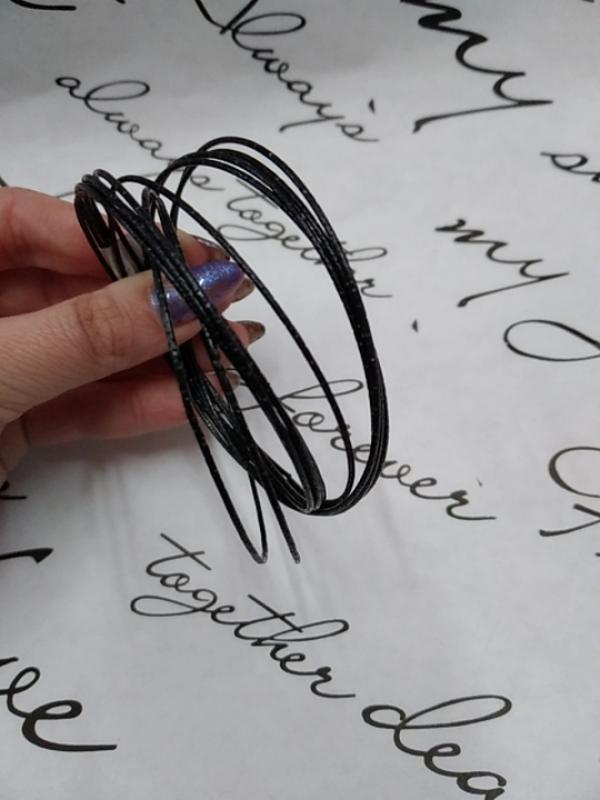 Always
my
always
together
my
forever
together dea
ve